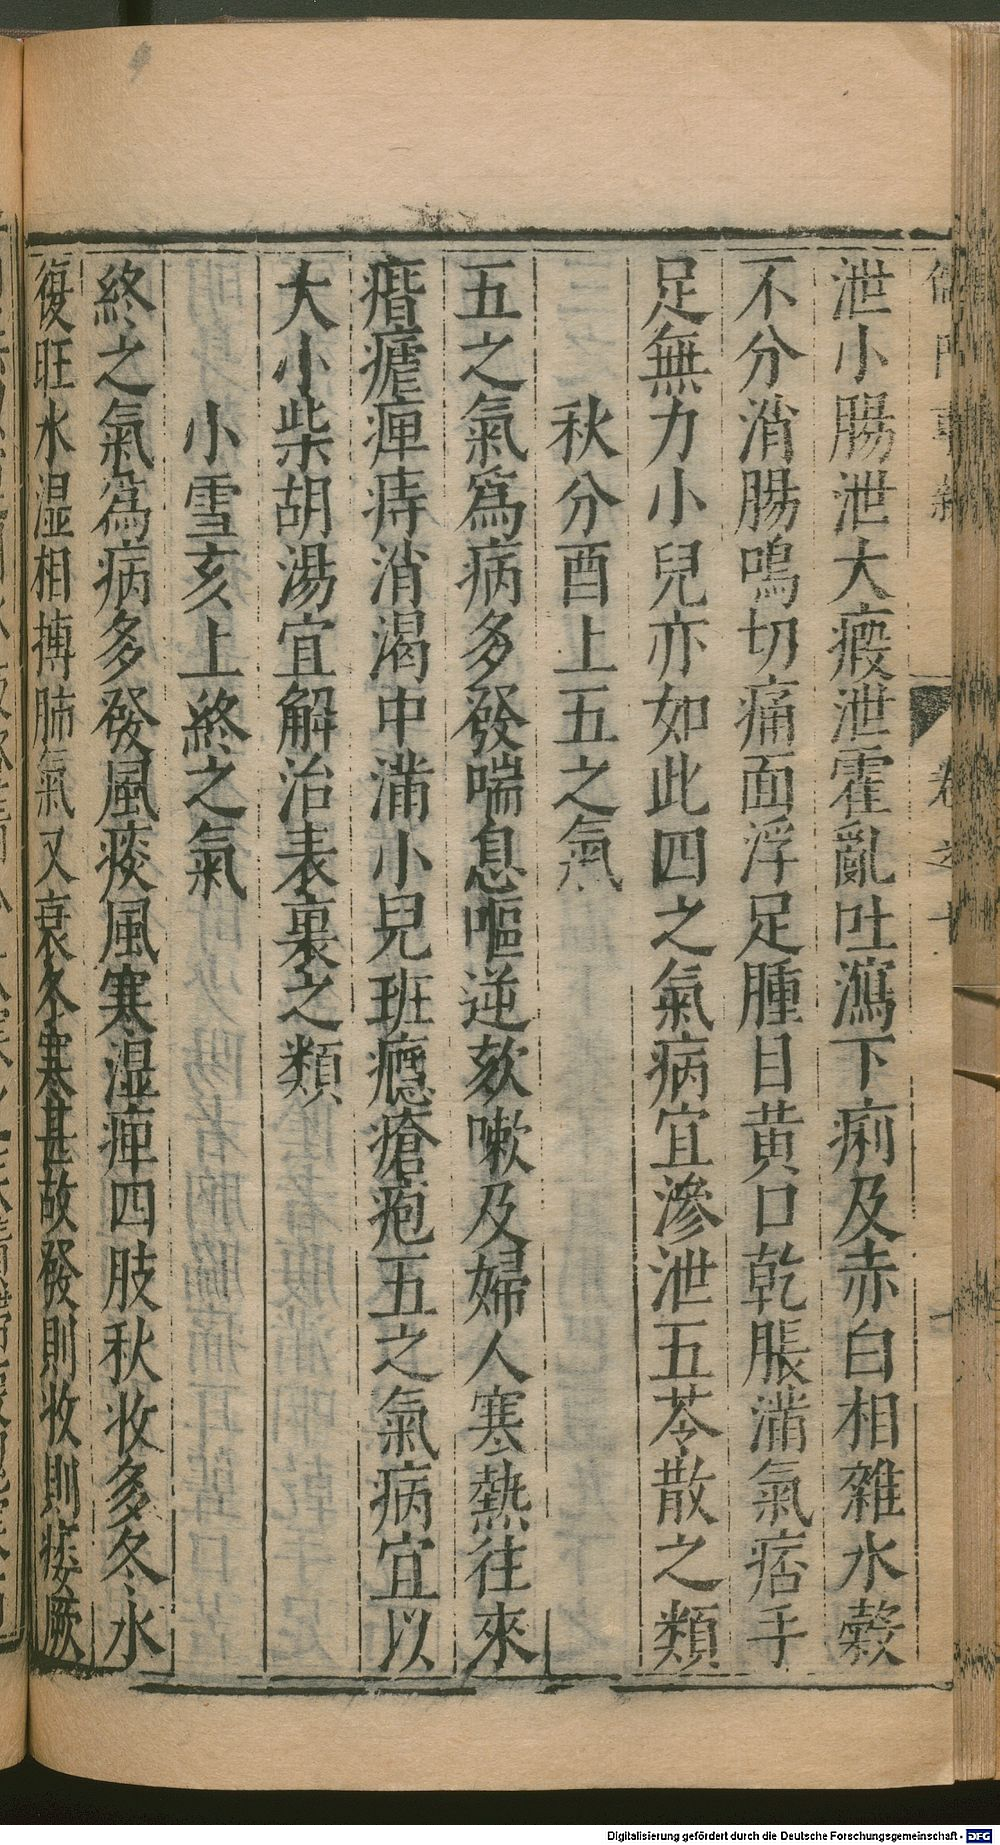 儒門事親 卷之十
泄小腸泄大瘕泄霍亂吐瀉下痢及赤白相雜水穀
不分消腸鳴切痛面浮足腫目黃口乾脹滿氣痞手
足無力小兒亦如此四之氣病宜滲泄五苓散之類
秋分酉上五之氣
五之氣爲病多發喘息嘔逆欬嗽及婦人寒熱往來
㾬瘧痺痔消渴中滿小兒班癮瘡疱五之氣病宜以
大小柴胡湯宜解治表裏之類
小雪亥上終之氣
終之氣爲病多發風痰風寒湿痺四肢秋收多冬水
復旺水湿相搏肺氣又衰冬寒甚故發則收則痿厥
Digitalisierung gefördert durch die Deutsche Forschungsgemeinschaft - DFG